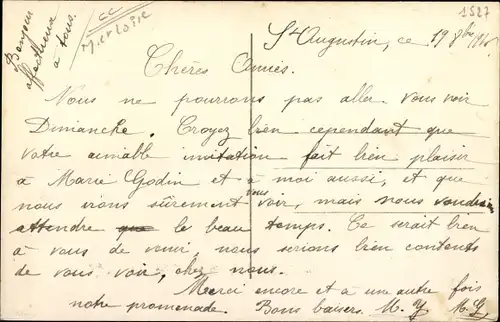 1527
cc
M et Loire
Bonjour
affectueux
à tous.
St Augustin, ce 19 8bre 906
Chères Amies.
Nous ne pourrons pas aller vous voir
Dimanche. Croyez bien cependant que
votre aimable invitation fait bien plaisir
à Marie Godin et à moi aussi, et que
nous irons sûrement vous voir, mais nous voudrions
attendre que le beau temps. Ce serait bien
à vous de venir, nous serions bien contents
de vous voir, chez nous.
Merci encore et à une autre fois
notre promenade. Bons baisers. M. Y M. G